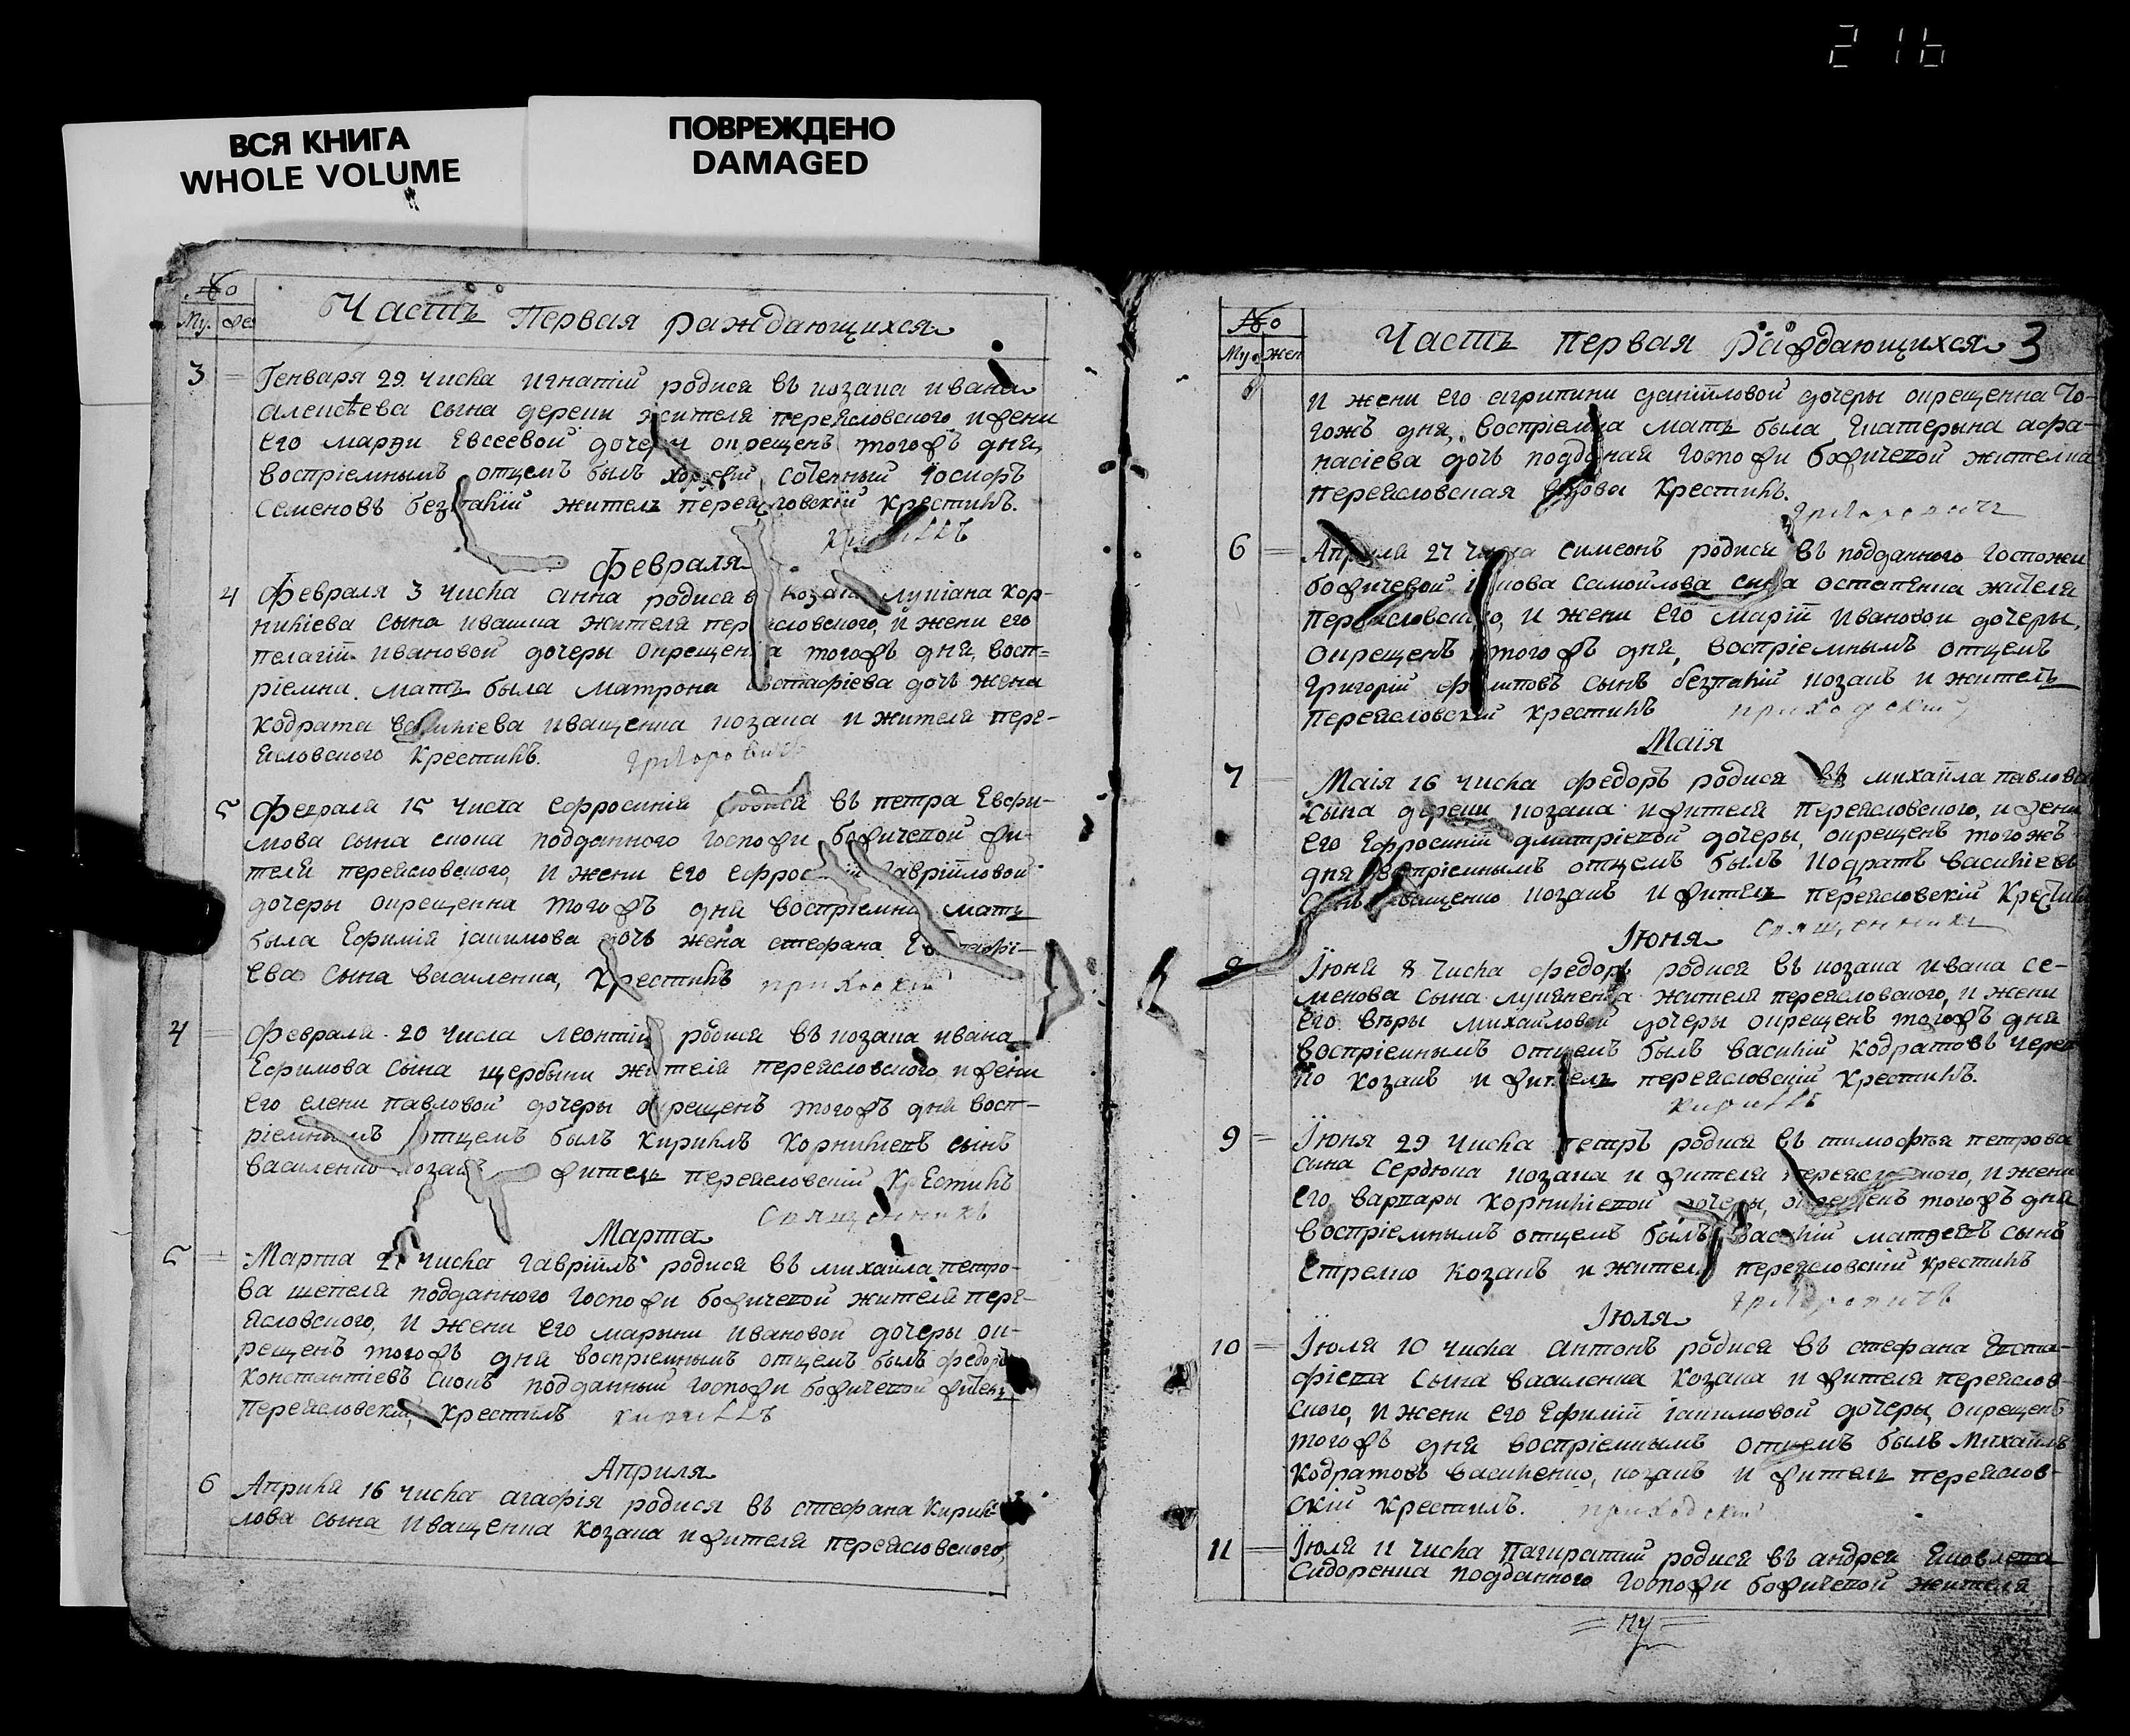 216
ВСЯ КНИГА
WHOLE VOLUME
ПОВРЕЖДЕНО
DAMAGED
№
Му. Же
Часть Первая раждающихся
3
Генваря 29 числа игнатій родися въ козака ивана
алексѣева сына дереки жителя переясловского и жени
его марѳи Евсеевой дочери окрещенъ тогожъ дня,
воспріемнымъ отцемъ былъ сотенный Іосифъ
Семеновъ житель переясловскій Крестилъ.
Февраля
4 Февраля 3 числа анна родися в козака лукіана кор-
нилїева сына ивашка жителя переясловского, и жени его
пелагїй ивановой дочеры окрещенна тогожъ дня, восп=
ріемна мать была матрона евстафіева дочь жена
кодрата василіева иващенка козака и жителя пере-
ясловского Крестилъ. Григоровичъ
5 Февраля 15 числа ефросинія родися въ петра Евфи-
мова сына скока подданного госпожи божичевой жи-
теля переясловского, и жени его ефросиній гавріиловой
дочеры окрещенна тогожъ дня воспріемна мать
была Ефимія іакимова дочь жена стефана Евстафі-
ева сына василенка, Крестилъ приходскій
4 Февраля 20 числа леонтій родися въ козака ивана
Ефимова сына щербини жителя переясловского и жени
его елени павловой дочеры окрещенъ тогожъ дня восп-
ріемнымъ отцемъ былъ кирилъ корниліевъ сынъ
василенко козакъ житель переясловскій Крестилъ
Священникъ
Марта
5 Марта числа гавріилъ родися въ михаила петро-
ва шепеля подданного госпожи божичевой жителя пере-
ясловского, и жени его марыны ивановой дочеры ок-
рещенъ тогожъ дня воспріемнымъ отцемъ былъ федоръ
константіевъ скокъ подданный госпожи божичевой житель
переясловскій, крестилъ кириллъ
Априля
6 Априля 16 числа агафія родися въ стефана кирил-
лова сына иващенка козака и жителя переясловского,
№
Му. жен
Часть первая Раждающихся 3
и жени его агрипини даніиловой дочеры окрещенна то-
гожъ дня, воспріемна мать была Екатерына афа-
насіева дочь подданая госпожи божичевой жителка
переясловская Крестилъ.
Григоровичъ
6 Априля 27 числа симеонъ родися въ подданного госпожи
божичевой самойлова сына остапенка жителя
переясловского, и жени его марїй ивановой дочеры,
окрещенъ тогожъ дня, воспріемнымъ отцемъ
григорій филиповъ сынъ козакъ и житель
переясловскій крестилъ приходскій
Маїя
7 Маія 16 числа федоръ родися въ михайла павлова
сына дереки козака и жителя переясловского, и жени
его Ефросиній дмитріевой дочеры, окрещенъ тогожъ
дня воспріемнымъ отцемъ былъ кодратъ василіевъ
сынъ иващенко козакъ и житель переясловскій Крестилъ
Священникъ
Іюня
8 Іюня 8 числа федоръ родися въ козака ивана се-
менова сына лукяненка жителя переясловского, и жени
его вѣры михайловой дочеры окрещенъ тогожъ дня
воспріемнымъ отцемъ былъ василій кодратовъ
козакъ и житель переясловскій Крестилъ.
кириллъ
9 Іюня 29 числа петръ родися въ тимофѣя петрова
сына сердюка козака и жителя переясловского, и жени
его варвары корниліевой дочеры, окрещенъ тогожъ дня
воспріемнымъ отцемъ былъ василій матвеевъ сынъ
стрелко козакъ и житель переясловскій крестилъ
Григоровичъ
Іюля
10 Іюля 10 числа антонъ родися въ стефана Евста-
фіева сына василенка козака и жителя переяслов-
ского, и жени его Ефимїй іакимовой дочеры, окрещенъ
тогожъ дня воспріемнымъ отцемъ былъ Михаилъ
кодратовъ василенко, козакъ и житель переяслов-
скій крестилъ. приходскій
11 Іюля 11 числа панкратій родися въ андрея Яковлева
сидоренка подданного госпожи божичевой жителя